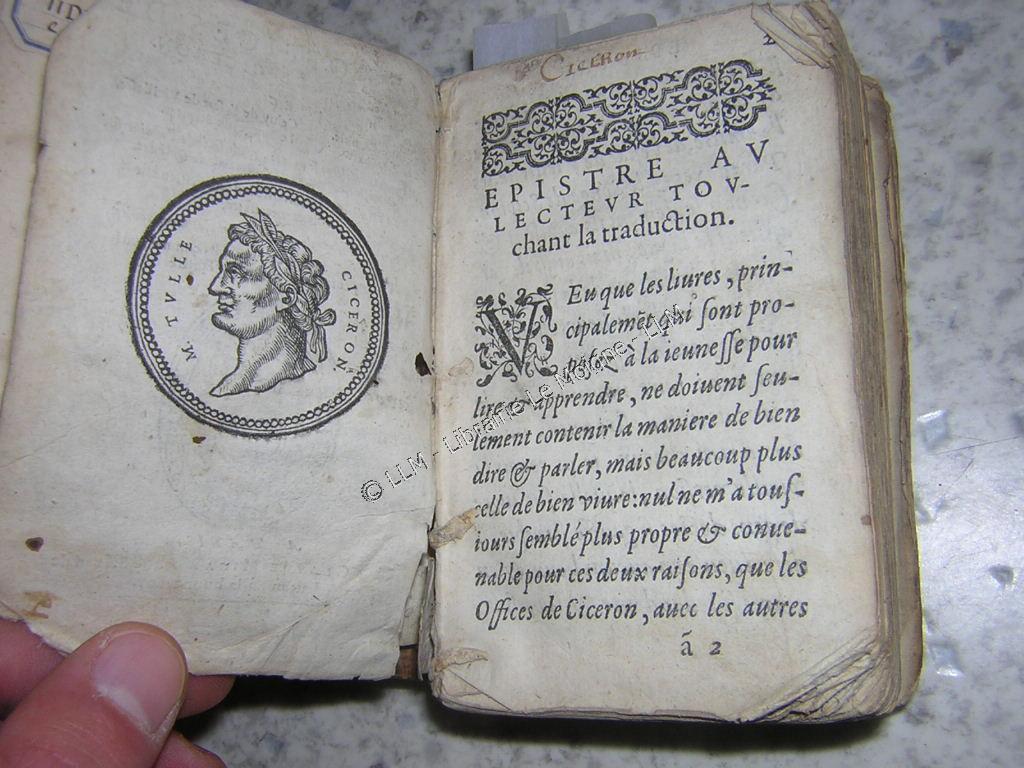 M. TVLLE CICERON.
CICERON
2
EPISTRE AV
LECTEVR TOV-
chant la traduction.
VEu que les liures, prin-
cipalemẽt qui sont pro-
à la ieunesse pour
lire & apprendre, ne doiuent seu-
lement contenir la maniere de bien
dire & parler, mais beaucoup plus
celle de bien viure: nul ne m'a tous-
iours semblé plus propre & conue-
nable pour ces deux raisons, que les
Offices de Ciceron, auec les autres
ã 2
© LLM - Librairie Le Moigne - LLM